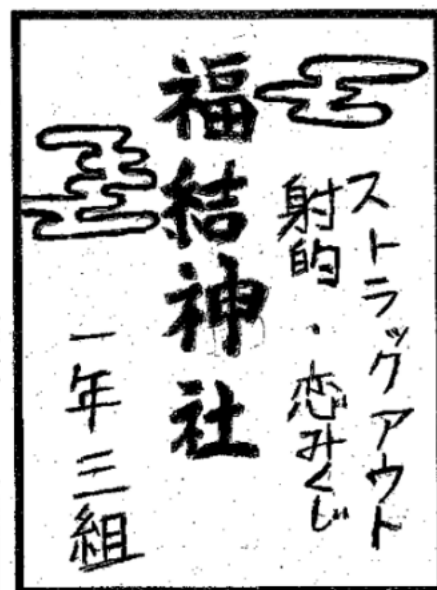 ストラックアウト
射的・恋みくじ
福結神社
一年三組